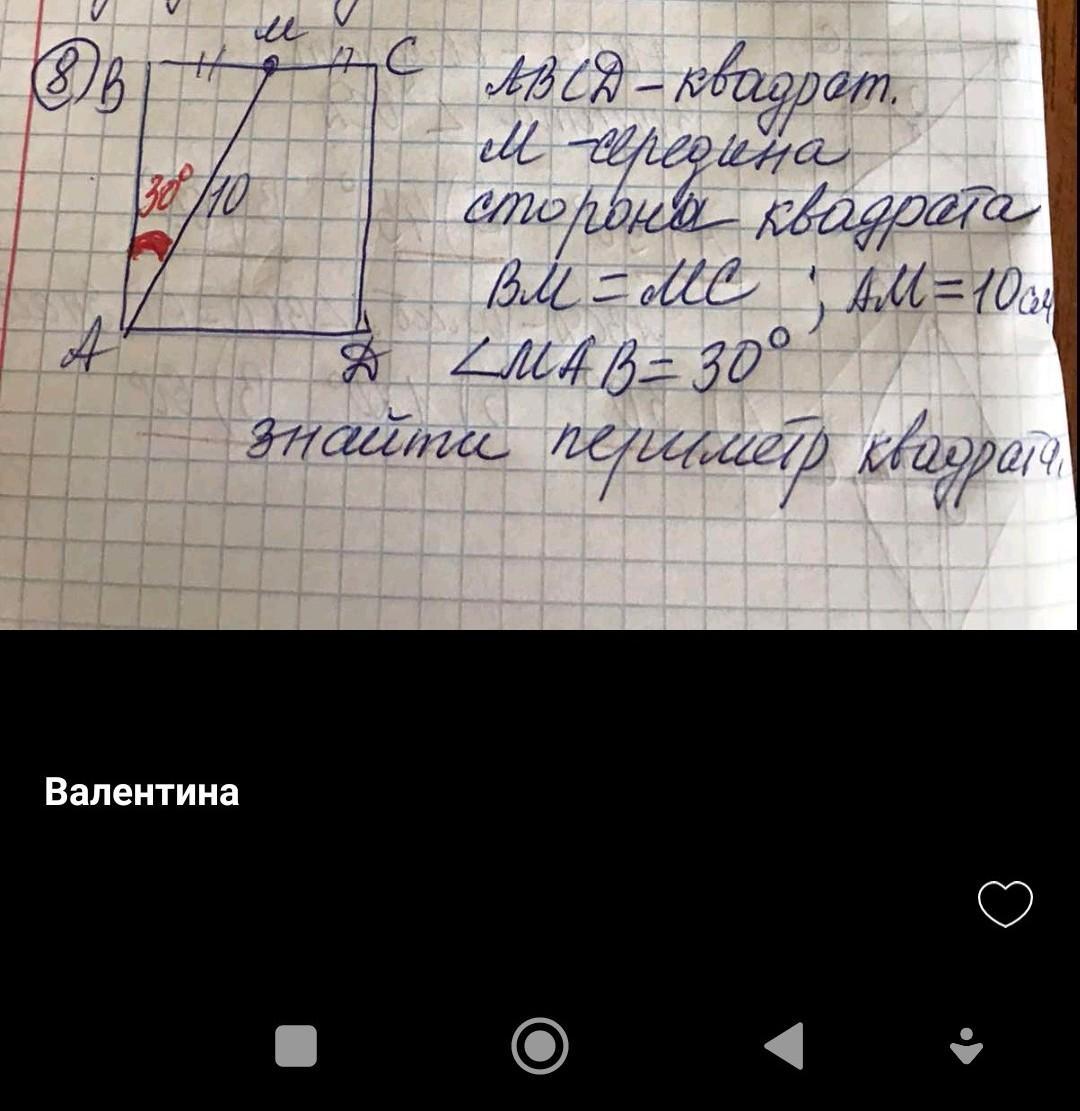 8
M
B
C
30°
10
A
D
ABCD - квадрат.
M - середина
стороны квадрата
BM = MC ; AM = 10см
∠MAB = 30°
знайти периметр квадрата.
Валентина